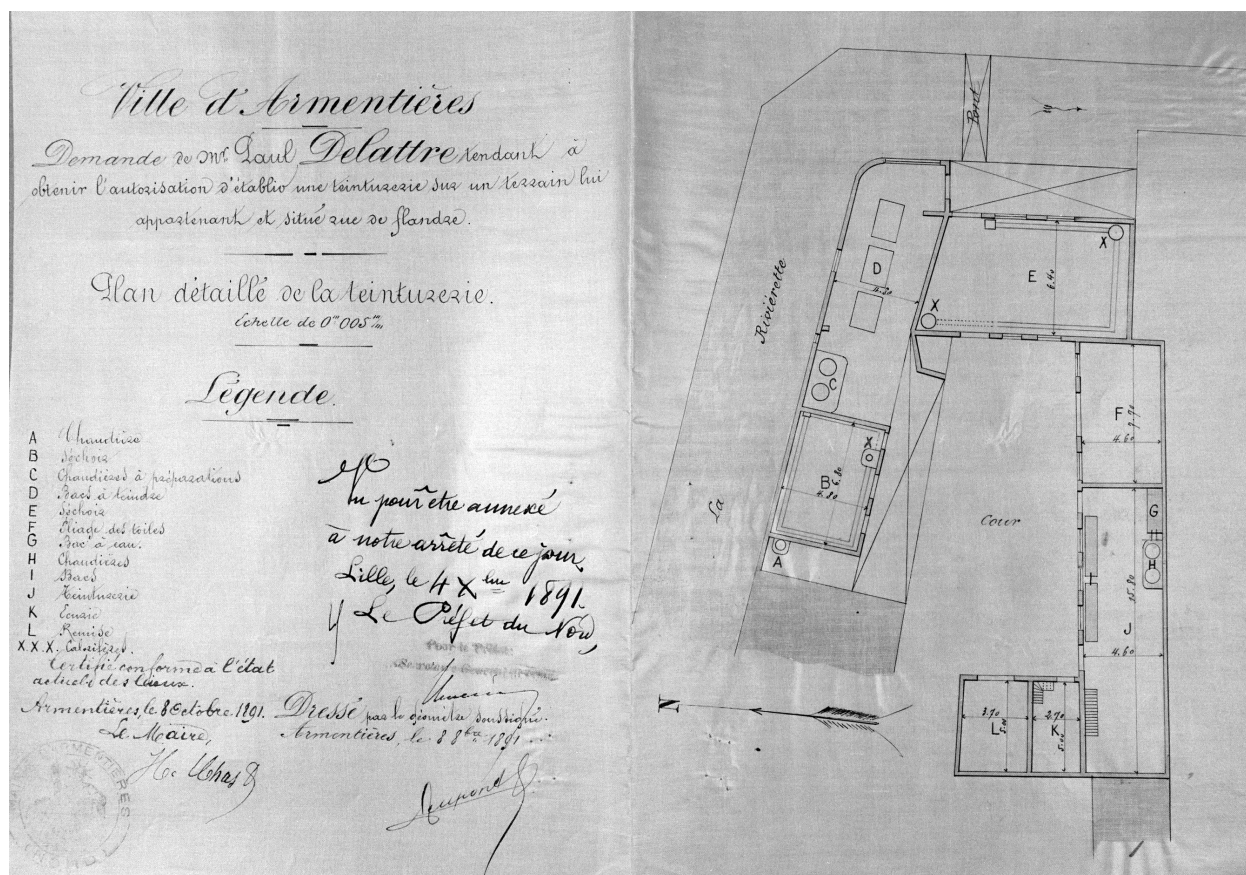 Ville d'Armentières
Demande de Mr Paul Delattre tendant à
obtenir l'autorisation d'établir une teinturerie sur un terrain lui
appartenant et situé rue de flandre.
Plan détaillé de la teinturerie.
Echelle de 0m005 m/m
Légende.
A Chaudière
B Séchoir
C Chaudières à préparations
D Bacs à teindre
E Séchoir
F Pliage des toiles
G Bac à eau.
H Chaudières
I Bacs
J Teinturerie
K Ecurie
L Remise
X.X.X. Calorifères.
Certifié conforme à l'état
actuel des lieux.
Armentières, le 8 Octobre 1891.
Le Maire,
Vu pour être annexé
à notre arrêté de ce jour.
Lille, le 4 Xbre 1891.
Le Préfet du Nord,
Pour le Préfet:
Dressé par le géomètre soussigné.
Armentières, le 8 8bre 1891
Dupond
ARMENTIERES
Pont
La Rivièrette
D
E
6.40
X
X
C
F
4.60
9.70
B
4.80
6.80
X
A
Cour
G
H
I
J
15.80
4.60
L
3.70
5.00
K
2.70
5.00
N